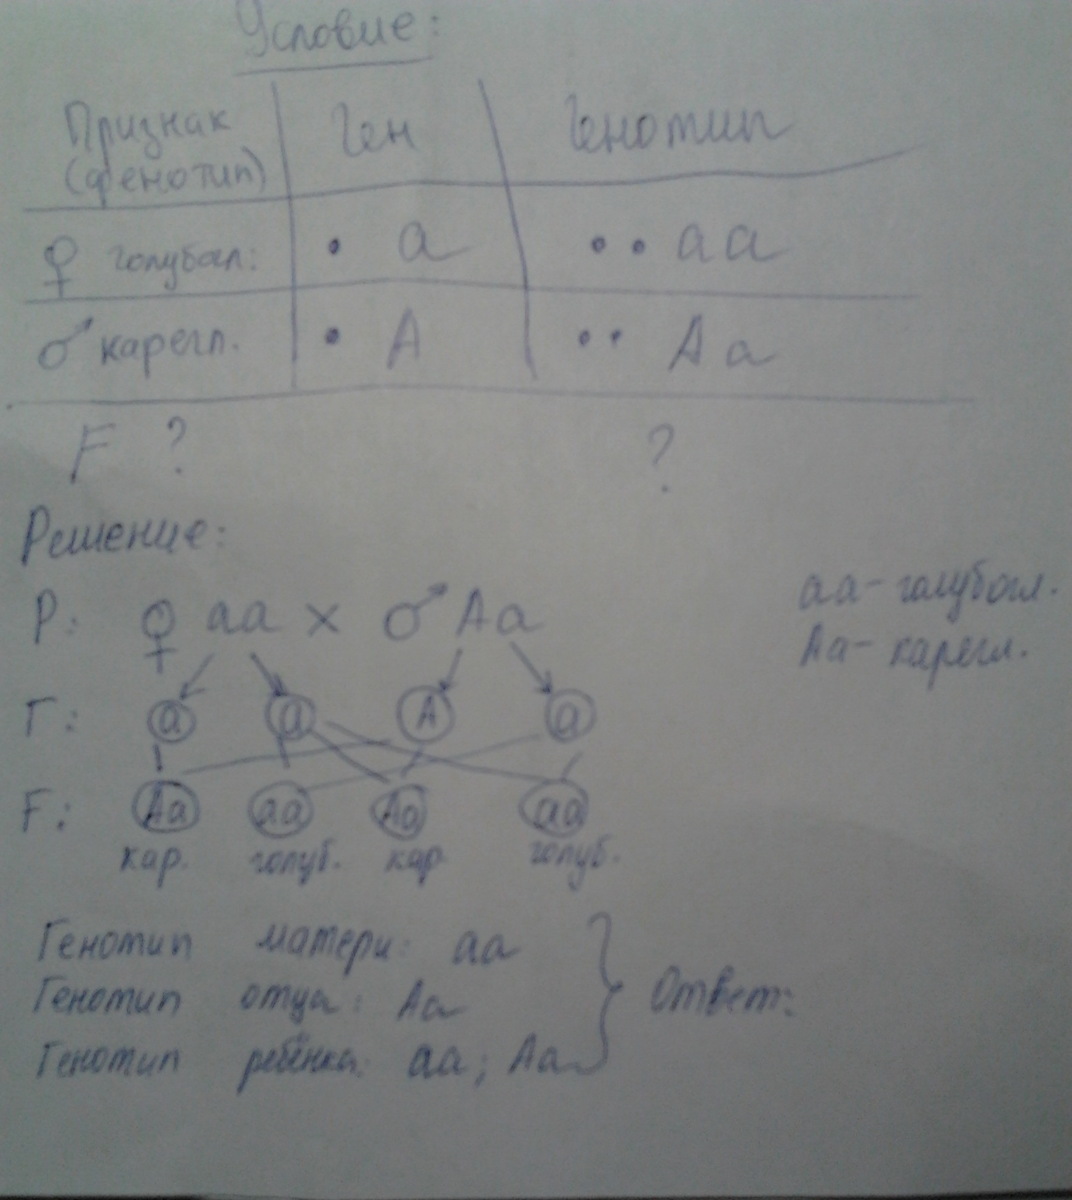 Условие:
Признак (фенотип) Ген Генотип
♀ голубогл: • a •• aa
♂ карегл. • A •• Aa
F ? ?
Решение:
P: ♀ aa × ♂ Aa
aa - голубогл.
Aa - карегл.
Г: a a A a
F: Aa aa Aa aa
кар. голуб. кар голуб.
Генотип матери: aa
Генотип отца: Aa
Генотип ребёнка: aa; Aa
Ответ: